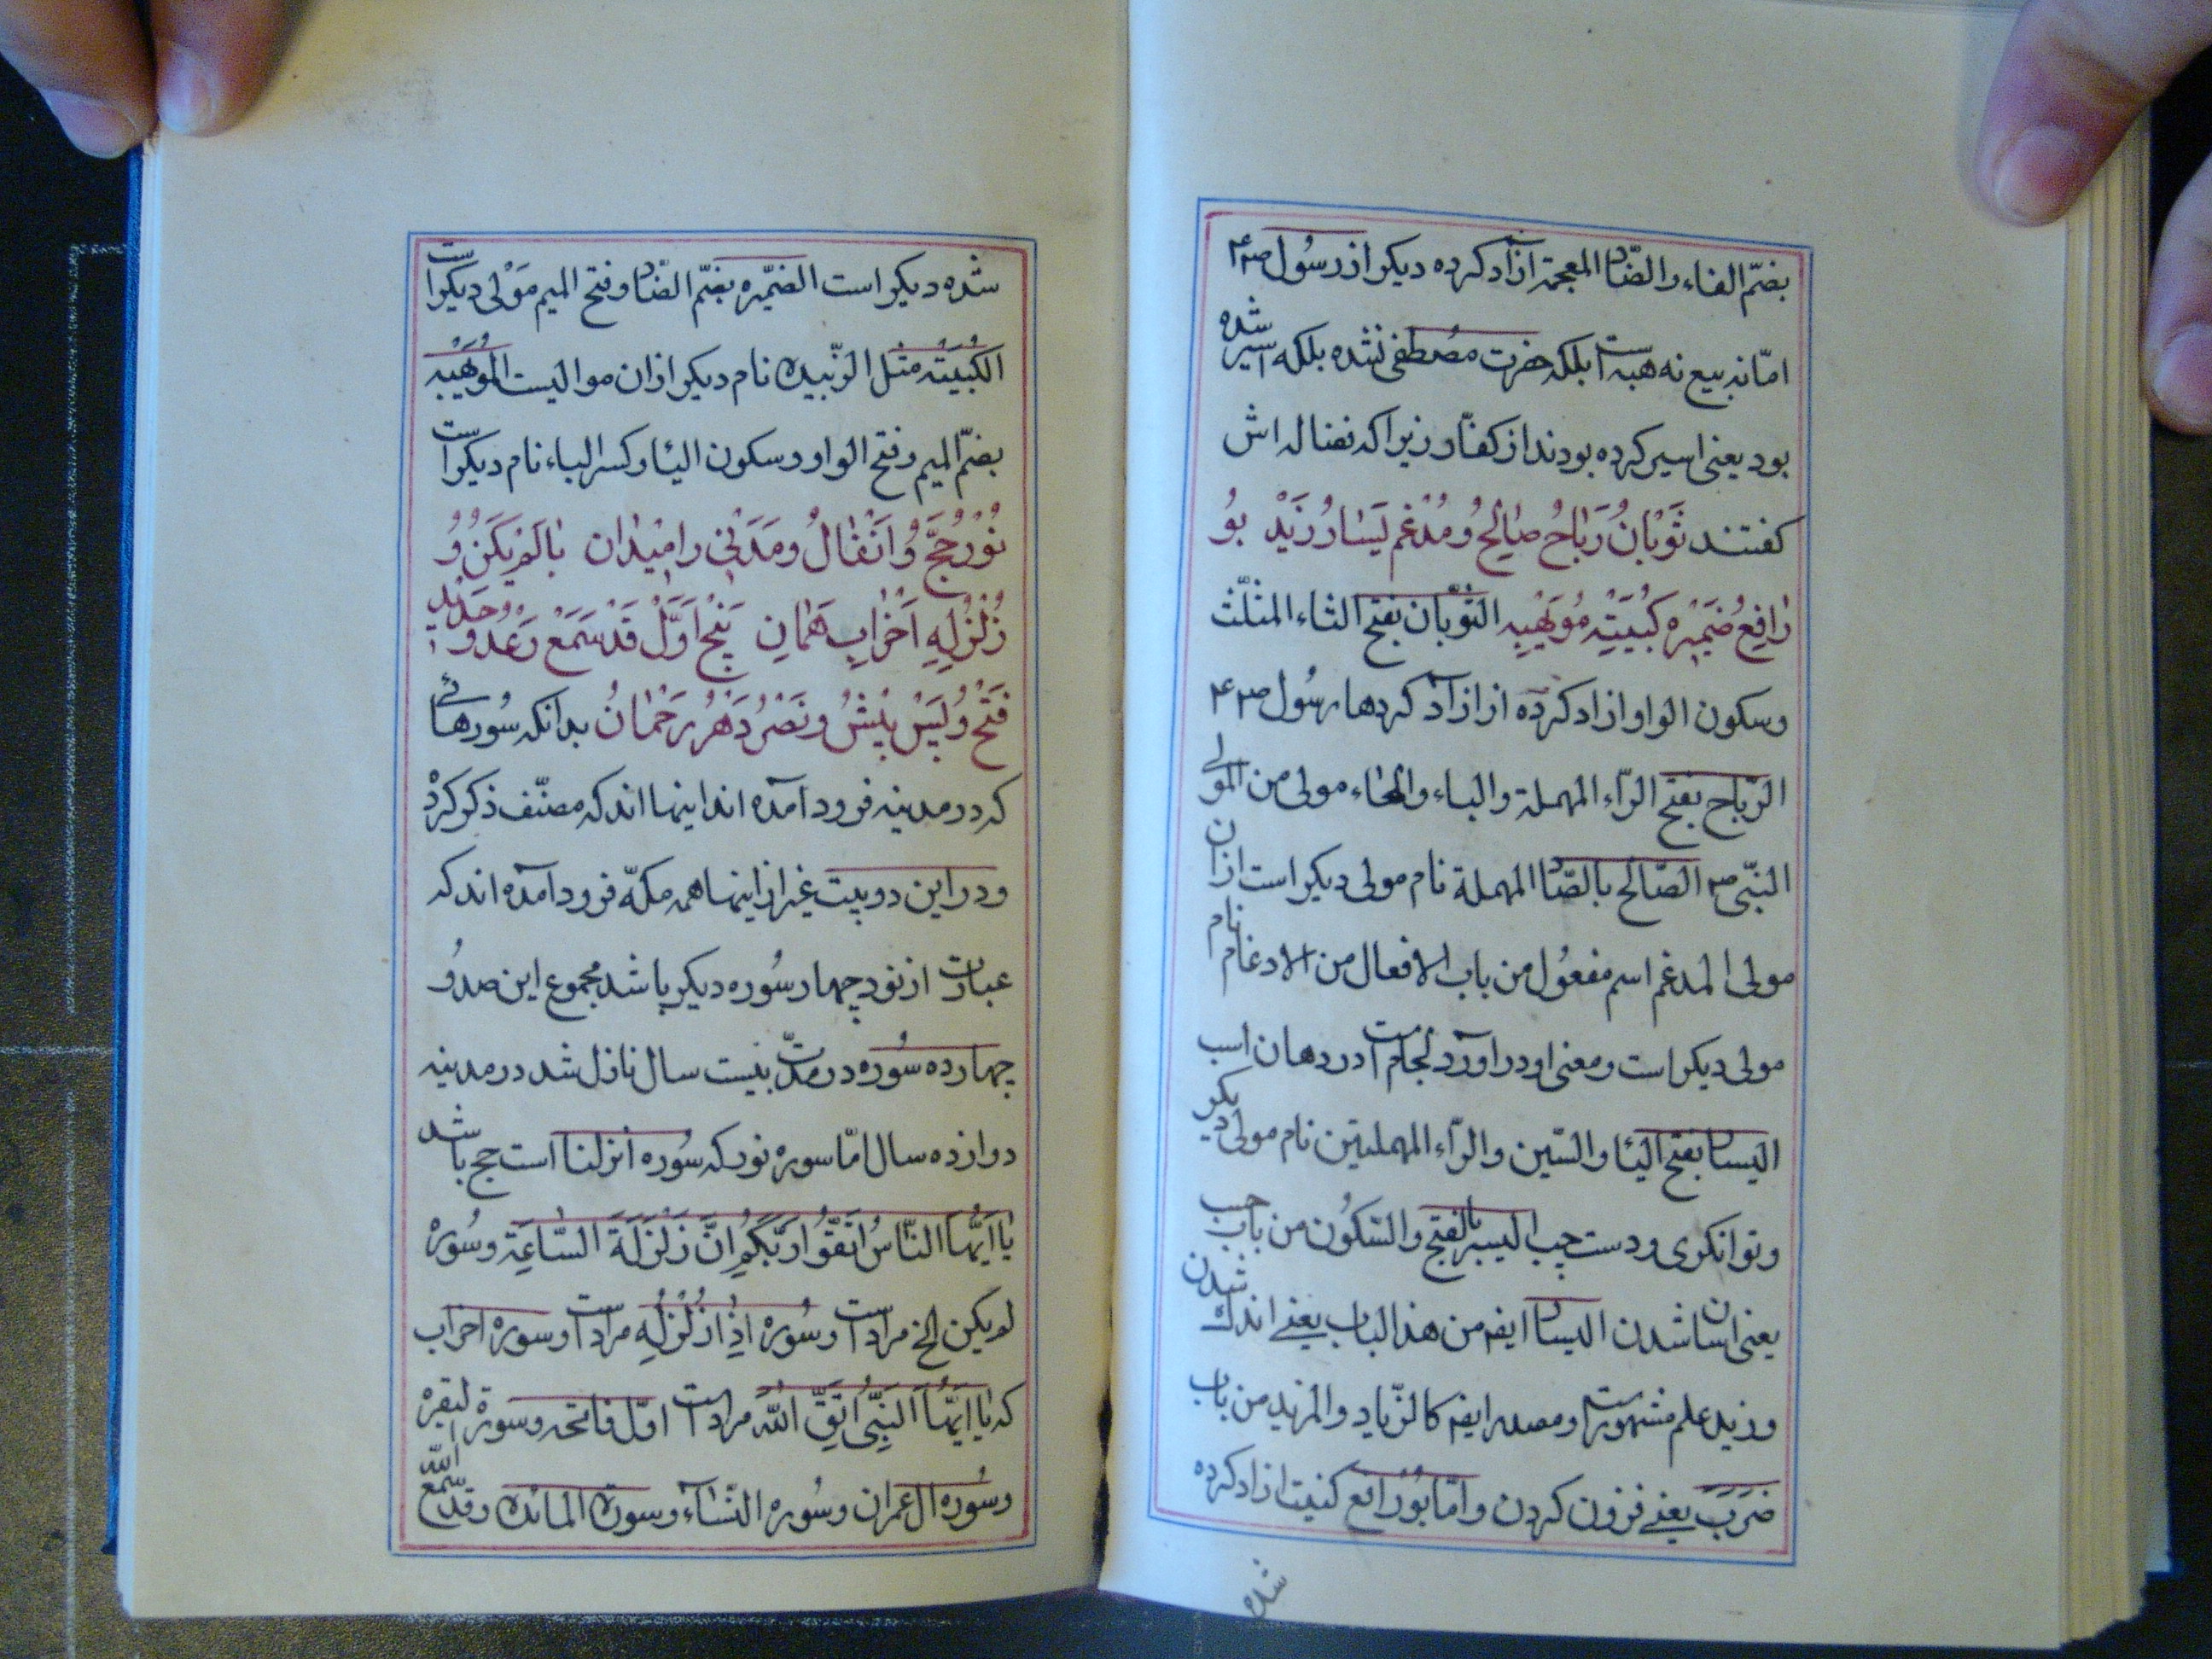 بضمّ الفاء والضّاد المعجمة ازاد کرده دیکر از رسول ص م
امّا نه بیع نه هبه است بلکه حضرت مصطفی نشده بلکه اسیر شده
بود یعنی اسیر کرده بودند از کفّار زیرا که نضاله اش
کفتند ثَوْبٰانُ رَبٰاحُ صٰالِحُ و مُدْغم یَسٰارُ زَیْد بُو
رٰافِعُ ضُمَیْره کُبَیْتِه مُوَیْهِبِه الثّوبان بفتح الثاء المثلّث
وسکون الواو ازاد کرده از ازاد کردهاء رسُول ص م
الرّباح بفتح الرّاء المهملة والباء والحاء مولی من المولی
النبّی ص الصّالح بالصّاد المهملة نام مولی دیکر است ازان
مولی المدغم اسم مفعُول من باب الافعال من الادغام نام
مولی دیکر است و معنی او در آورد لجام است در دهان اسب
الیسار بفتح الیاء والسّین والرّاء المهملتین نام مولی دیکر
وتوانکری و دست چپ الیسر بالفتح والسّکون من باب حسب
یعنی اسان شدن الیسار ایضم من هذا الباب یعنے اندک شدن
وزید علم مشهور است ومصدر ایضم کالزّیاد والمزید من باب
ضَرَبَ یعنے فزون کردن وامّا بُورٰافع کنیت ازاد کرده
شده
شده دیکر است الضمّیره بضمّ الضّاد وفتح المیم مَوْلی دیکر است
الکُبَیْتُه مثل الزّبیده نام دیکر ازان موالیست المُوَیْهِبه
بضمّ المیم وفتح الواو وسکون الیاء وکسر الباء نام دیکر است
نُوْر حَجّ وُ اَنْفٰالُ و مَدَنی رٰا مٖیدٰان بٰا لَمْ یَکَنُ وُ
زُلْزِلِهِ اَحْزٰابِ هَمٰانِ پَنْج اَوَّلْ قَدْ سَمَعْ رَعْدُ و حَدٖید
فَتْح وُ لَیْسَ بٖیشُ و نَصْرُ دَهْر رَحْمٰانُ بدانکه سُورهائے
که در مدینه فرود آمده اند اینها اند که مصنّف ذکر کرد
ودر این دو بیت غیر از اینها همه مکّه فرود آمده اند که
عبارت از نود چهار سُوره دیکر باشد مجموع این صد وُ
چهارده سُوره در مدّت بیست سال نازل شد در مدینه
دوازده سال امّا سوره نور که سُوره انزلنا است حج باشد
یٰا اَیُّهَا النّاسُ اتّقُوا رَبَّکُم اِنَّ زَلْزَلَةَ السّاعَةِ وسُوره
لم یکن الخ مراد است وسُوره اِذٰا زُلْزِلَهِ مراد است وسوره احزاب
که یٰا اَیُّهَا النَّبِیُّ اتَّقِ اللّٰه مراد است اوّل فاتحه وسورة البقره
وسُوره ال عمران وسُوره النّسٰاء وسوره المائده وقد سمع اللّه